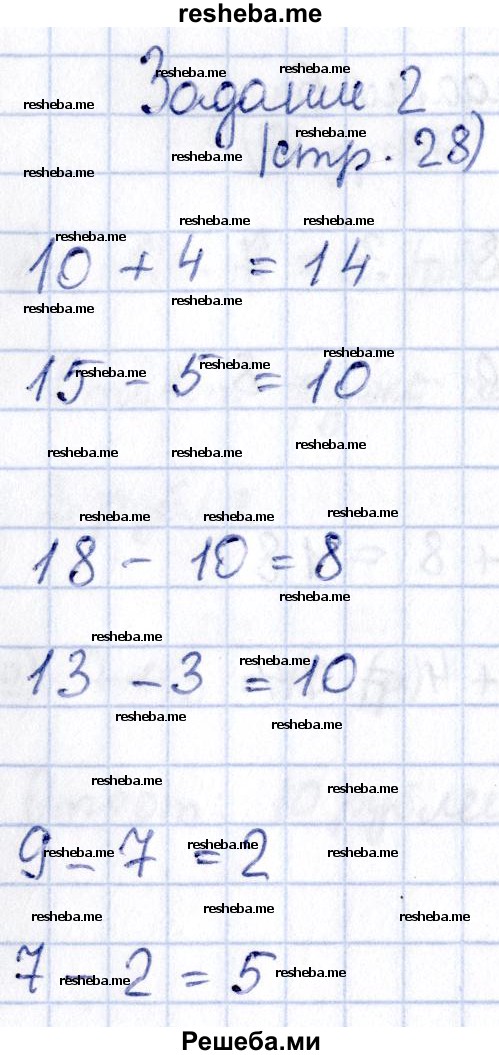 resheba.me
Задание 2
(стр. 28)
10 + 4 = 14
15 - 5 = 10
18 - 10 = 8
13 - 3 = 10
9 - 7 = 2
7 - 2 = 5
Решеба.ми